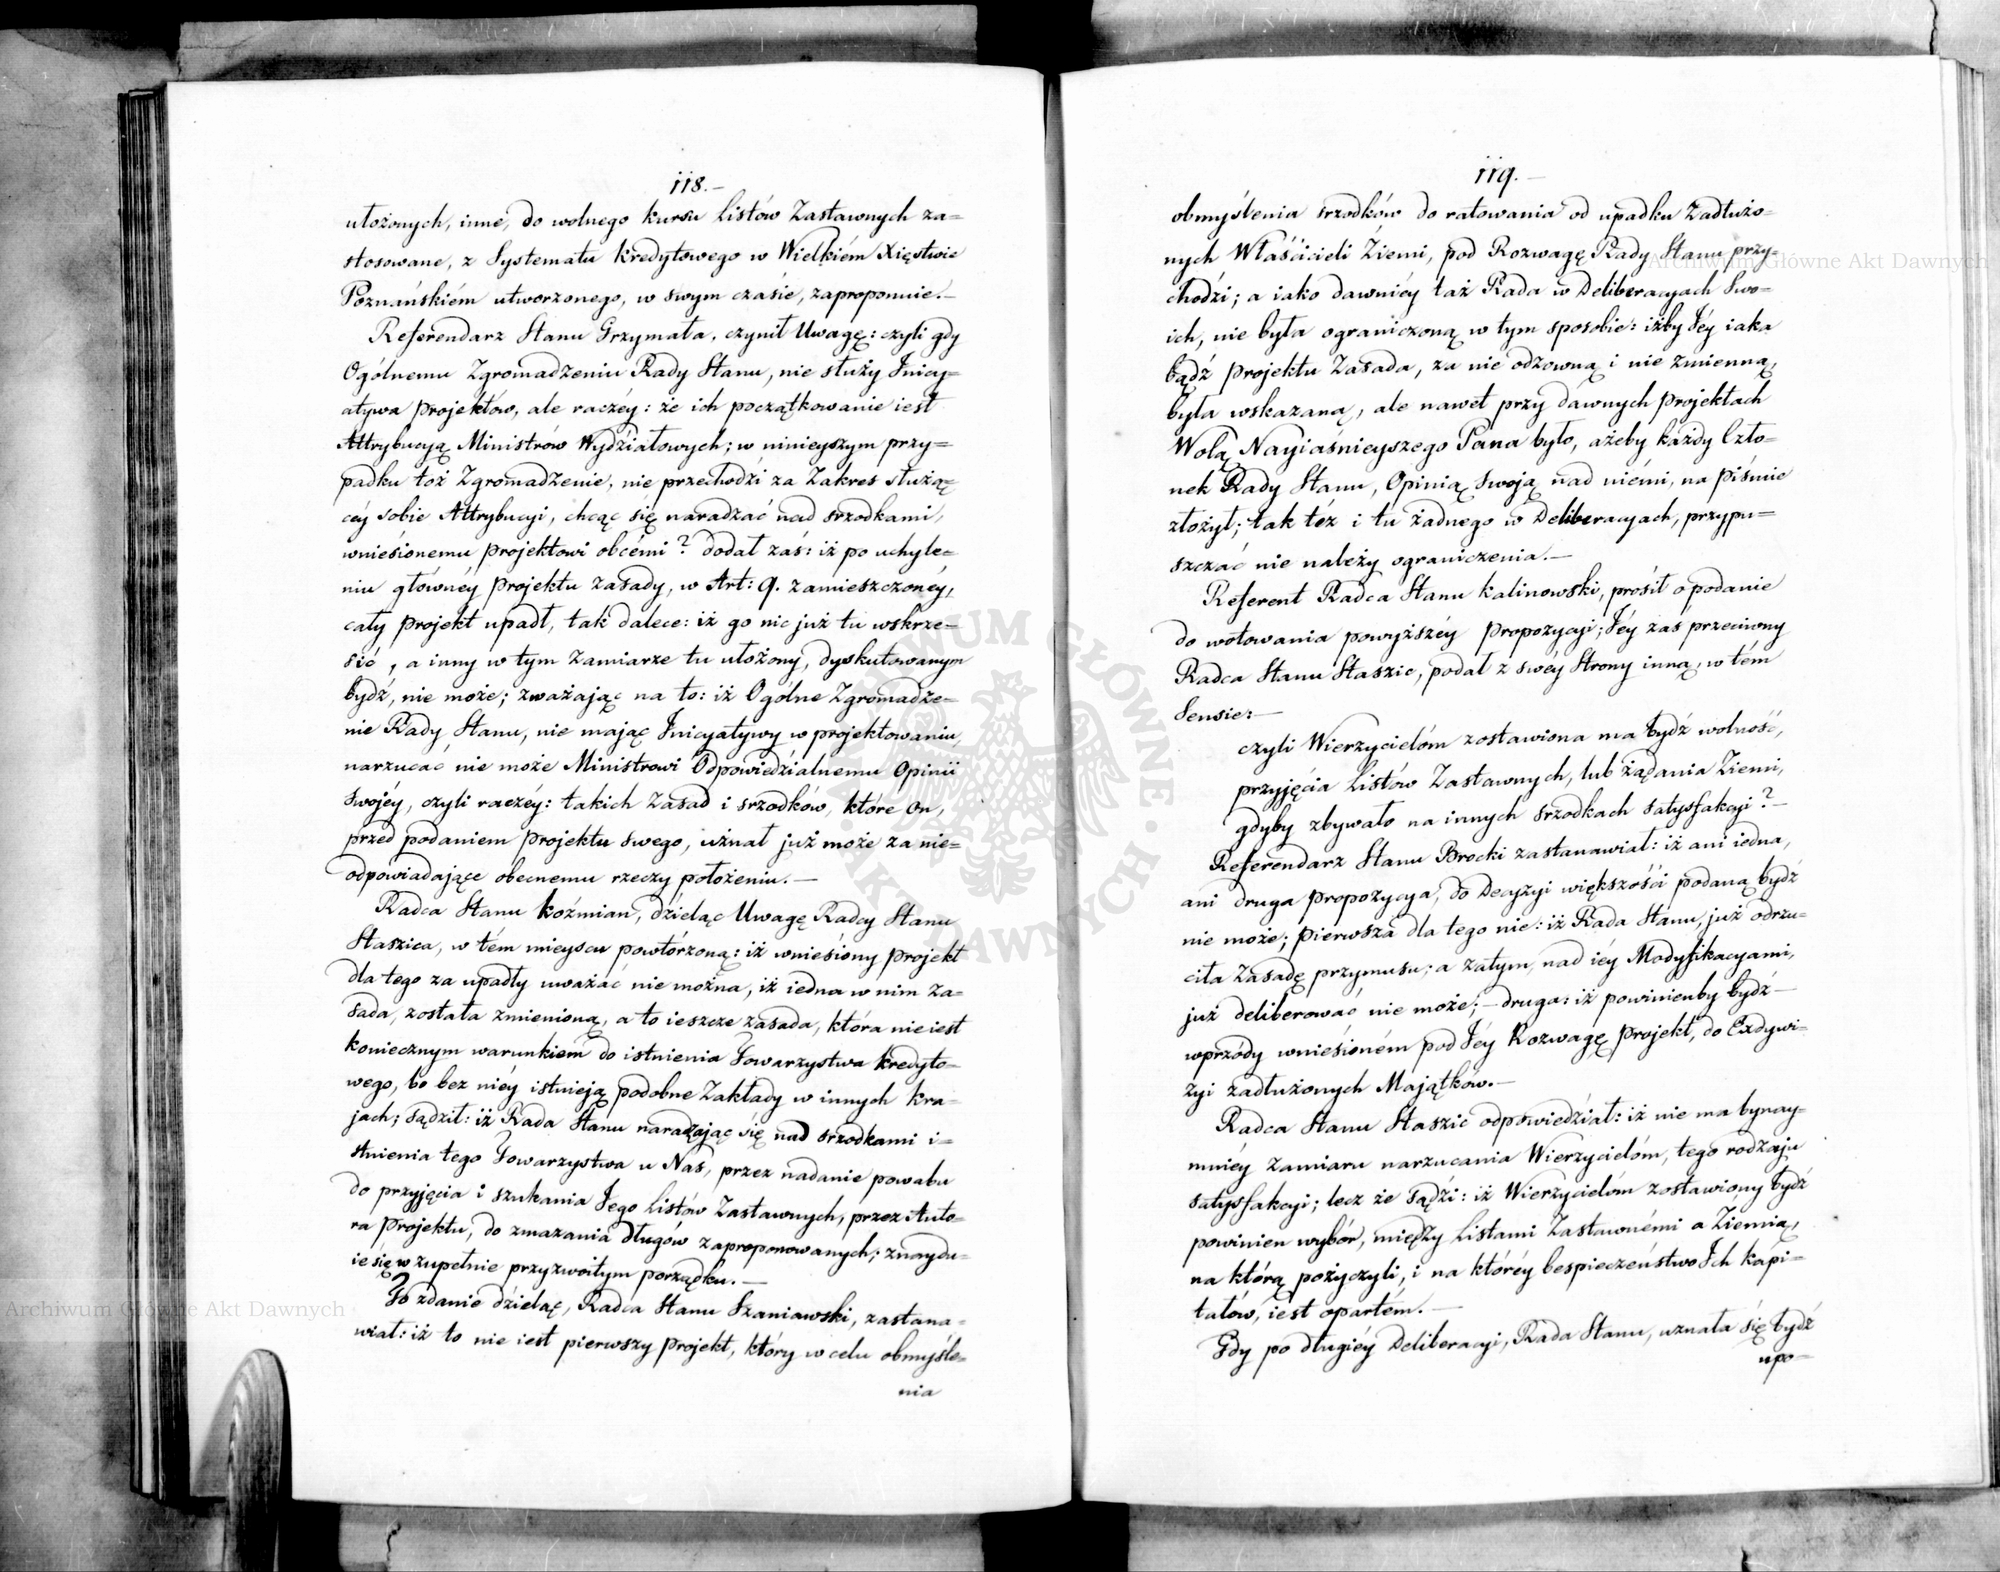 118.—
ułożonych, inne, do wolnego kursu Listów Zastawnych za=
stosowane, z Systematu kredytowego w Wielkiém Xięstwie
Poznańskiém utworzonego, w swym czasie, zaproponuie.—
Referendarz Stanu Grzymała, czynił Uwagę: czyli gdy
Ogólnemu Zgromadzeniu Rady Stanu, nie służy Inicy=
atywa projektow, ale raczéy: że ich początkowanie iest
Attrybucyą Ministrów Wydziałowych; w ninieyszym przy=
padku toż Zgromadzenie, nie przechodzi za Zakres służą=
céy sobie Attrybucyi, chcąc się naradzać nad srzodkami,
wniesionemu projektowi obcémi? dodał zaś: iż po uchyle=
niu głównéy projektu zasady, w Art: 9. zamieszczonéy,
cały projekt upadł, tak dalece: iż go nic już tu wskrze=
sić, a inny w tym zamiarze tu ułożony, dyskutowanym
bydź, nie może; zważając na to: iż Ogólne Zgromadze=
nie Rady Stanu, nie mając Inicyatywy w projektowaniu,
narzucać nie może Ministrowi Odpowiedzialnemu Opinii
swojéy, czyli raczéy: takich Zasad i srzodków, które On,
przed podaniem projektu swego, uznał już może za nie=
odpowiadające obecnemu rzeczy położeniu.—
Radca Stanu Koźmian, dzieląc Uwagę Radcy Stanu
Staszica, w tém mieyscu powtórzoną: iż wniesiony projekt
dla tego za upadły uważać nie można, iż iedna w nim Za=
sada, została zmienioną, a to ieszcze zasada, która nie iest
koniecznym warunkiem do istnienia Towarzystwa kredyto=
wego, bo bez niéy istnieją podobne Zakłady w innych kra=
jach; sądził: iż Rada Stanu naradzając się nad srzodkami i=
stnienia tego Towarzystwa u Nas, przez nadanie powabu
do przyjęcia i szukania Jego Listów Zastawnych, przez Auto=
ra projektu, do zmazania długów zaproponowanych; znaydu=
ie się w zupełnie przyzwoitym porządku.—
To zdanie dzieląc, Radca Stanu Szaniawski, zastana=
wiał: iż to nie iest pierwszy projekt, który w celu obmyśle=
nia
119.—
obmyślenia srzodków do ratowania od upadku Zadłużo=
nych Właścicieli Ziemi, pod Rozwagę Rady Stanu przy=
chodzi; a iako dawniéy taż Rada w Deliberacyach Swo=
ich, nie była ograniczoną w tym sposobie: iżby Jéy iaka
bądź projektu Zasada, za nie odzowną i nie zmienną,
była wskazaną, ale nawet przy dawnych projektach
Wolą Nayiaśnieyszego Pana było, ażeby każdy Czło=
nek Rady Stanu, Opinią swoją nad niémi, na piśmie
złożył; tak też i tu żadnego w Deliberacyach, przypu=
szczać nie należy ograniczenia.—
Referent Radca Stanu Kalinowski, prosił o podanie
do wotowania powyższéy propozycyi; Jéy zaś przeciwny
Radca Stanu Staszic, podał z swéy Strony inną, w tém
Sensie:—
czyli Wierzycielóm zostawiona ma bydź wolność,
przyjęcia Listów Zastawnych, lub żądania Ziemi,
gdyby zbywało na innych srzodkach satysfakcyi?—
Referendarz Stanu Brocki zastanawiał: iż ani iedna,
ani druga propozycya, do Decyzyi większości podaną bydź
nie może; pierwsza dla tego nie: iż Rada Stanu, już odrzu=
ciła Zasadę przymusu; a zatym, nad iéy Modyfikacyami,
już deliberować nie może;—druga: iż powinienby bydź—
wprzódy wniesioném pod Jéy Rozwagę projekt, do Exdywi=
zyi zadłużonych Majątków.—
Radca Stanu Staszic odpowiedział: iż nie ma bynay=
mniéy zamiaru narzucania Wierzycielóm, tego rodzaju
satysfakcyi; lecz że sądzi: iż Wierzycielóm zostawiony bydź
powinien wybór, między Listami Zastawnémi a Ziemią,
na którą pożyczyli, i na któréy bespieczeństwo Ich kapi=
tałów, iest opartém.—
Gdy po długiéy Deliberacyi, Rada Stanu, uznała się bydź
upo=
Archiwum Główne Akt Dawnych
Archiwum Główne Akt Dawnych
ARCHIWUM GŁÓWNE AKT DAWNYCH